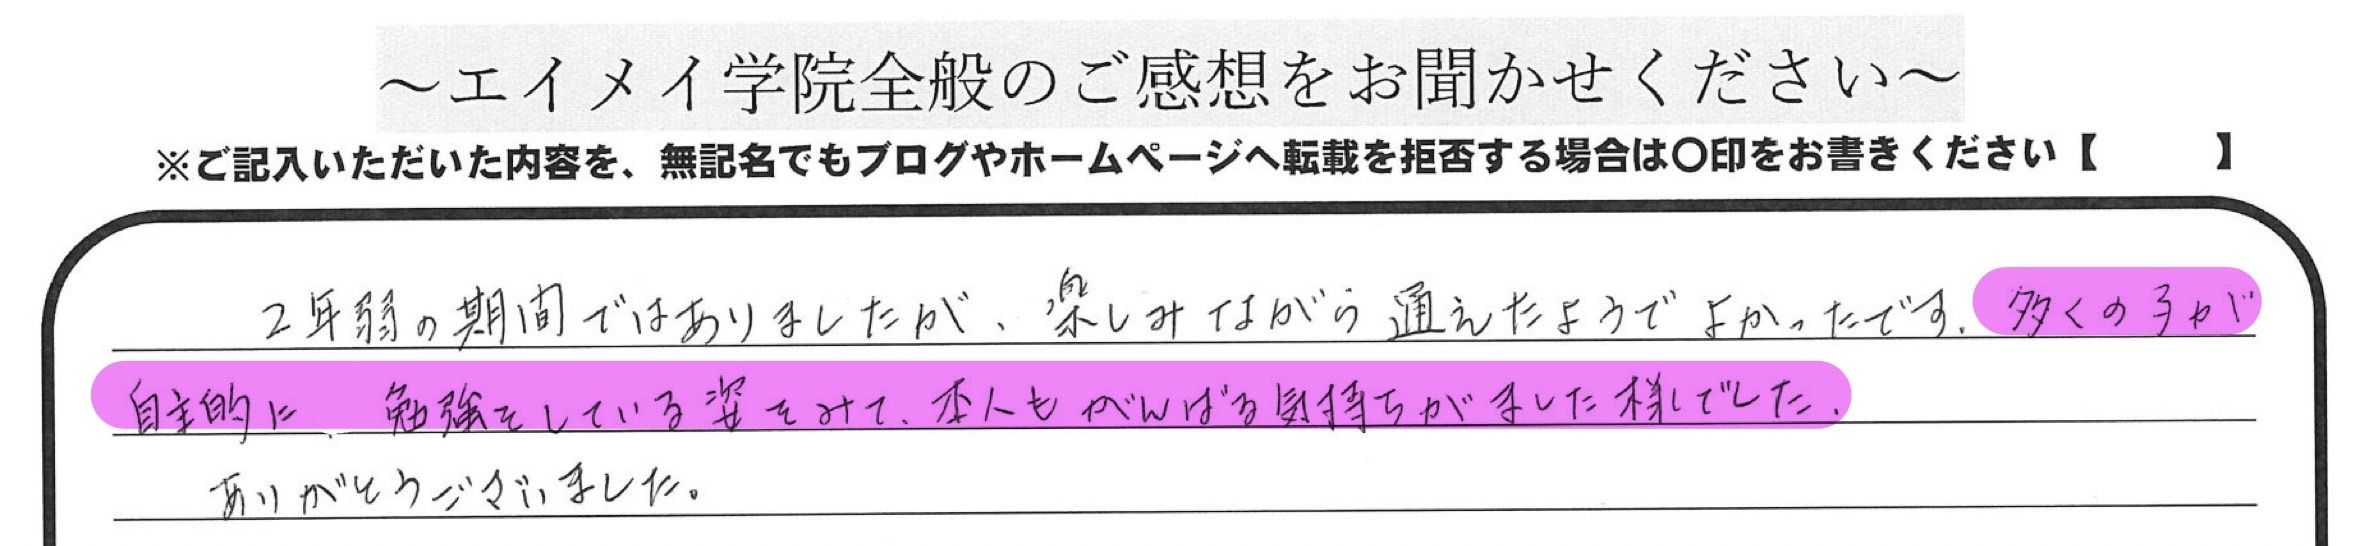 ～エイメイ学院全般のご感想をお聞かせください～
※ご記入いただいた内容を、無記名でもブログやホームページへ転載を拒否する場合は〇印をお書きください【　　　】
2年弱の期間ではありましたが、楽しみながら通えたようでよかったです。多くの子が
自主的に、勉強をしている姿をみて、本人もがんばる気持ちがました様でした。
ありがとうございました。